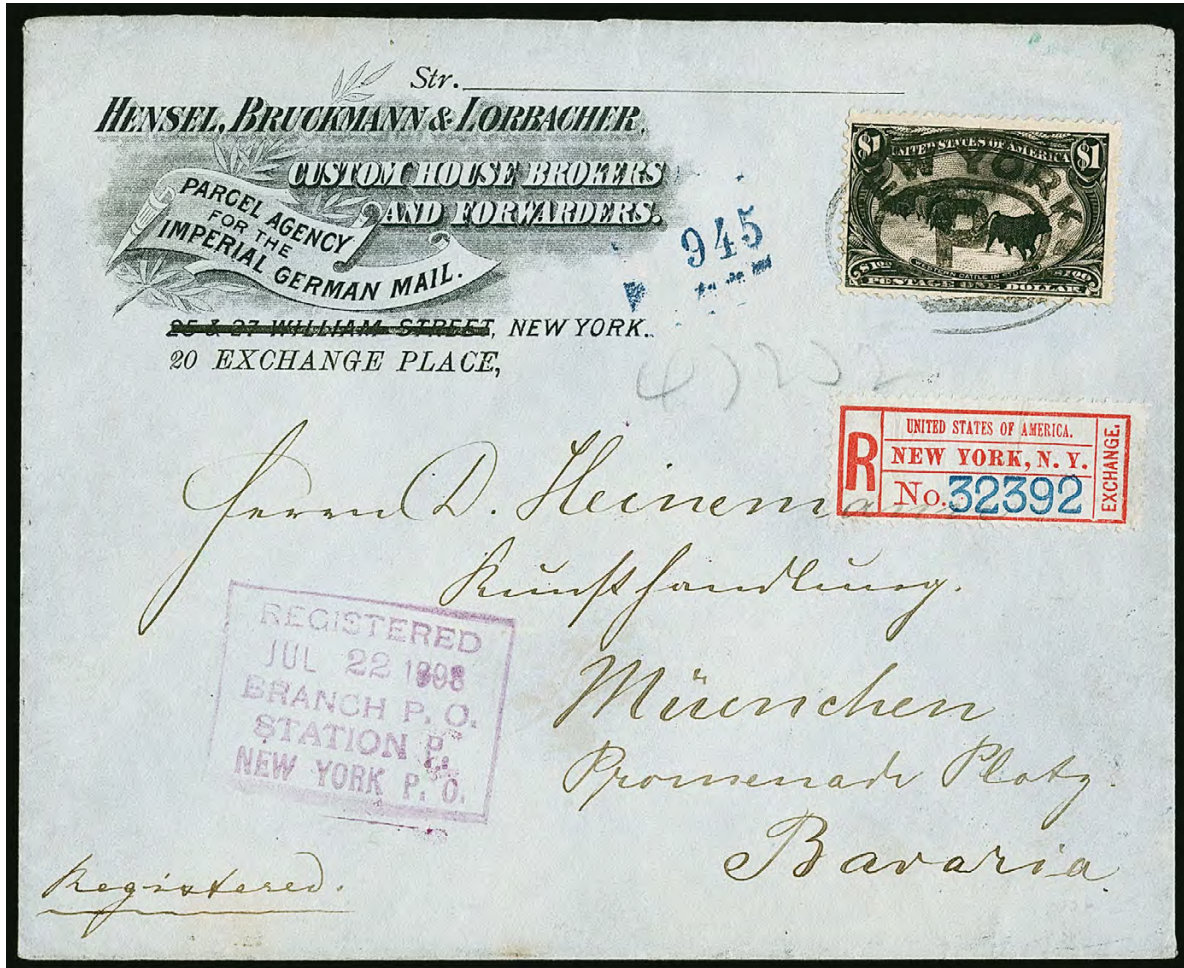 Str.
HENSEL, BRUCKMANN & LORBACHER,
CUSTOM HOUSE BROKERS
AND FORWARDERS.
PARCEL AGENCY
FOR THE
IMPERIAL GERMAN MAIL.
25 & 27 WILLIAM STREET, NEW YORK.
20 EXCHANGE PLACE,
945
$1 UNITED STATES OF AMERICA $1
NEW YORK
P
WESTERN CATTLE IN STORM
$1.00 $1.00
POSTAGE ONE DOLLAR
47232
R
UNITED STATES OF AMERICA.
NEW YORK, N. Y.
No. 32392
EXCHANGE.
Herrn D. Heinemann
Kunsthandlung.
Müenchen
Promenade Platz.
Bavaria
REGISTERED
JUL 22 1898
BRANCH P. O.
STATION P.
NEW YORK P. O.
Registered.